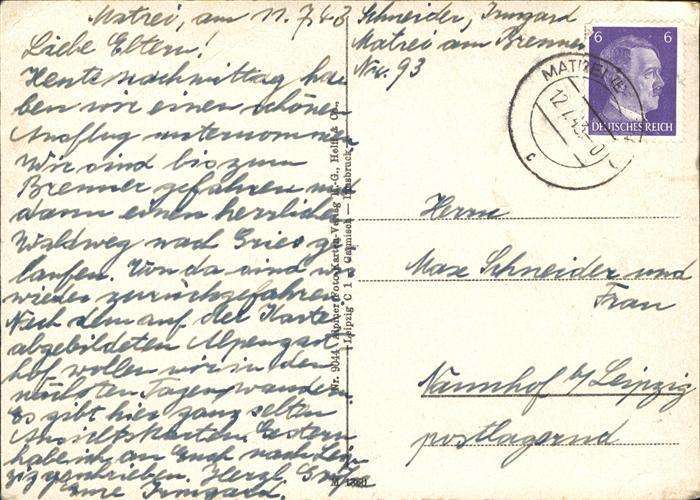 Matrei, am 11.7.43
Liebe Eltern!
Heute nachmittag ha-
ben wir einen schönen
Ausflug unternommen
Wir sind bis zum
Brenner gefahren und
dann einen herrlichen
Waldweg nach Gries ge-
laufen. Von da sind wir
wieder zurückgefahren
Nach dem auf der Karte
abgebildeten Alpengast
hof wollen wir in den
nächsten Tagen wandern.
Es gibt hier ganz selten
Ansichtskarten. Gestern
habe ich an Euch nach Leip
zig geschrieben. Herzl. Grüße
Eure Irmgard.
Nr. 9044 Alpiner Foto-Karten-Verlag A.-G., Helff & Co.,
Leipzig C 1 — Garmisch — Innsbruck
M 1368
Schneider, Irmgard
Matrei am Brenner
Nr. 93
6 6
DEUTSCHES REICH
MATREI
12.7.43
c
Herrn
Max Schneider und
Frau
Naunhof b/Leipzig
postlagernd